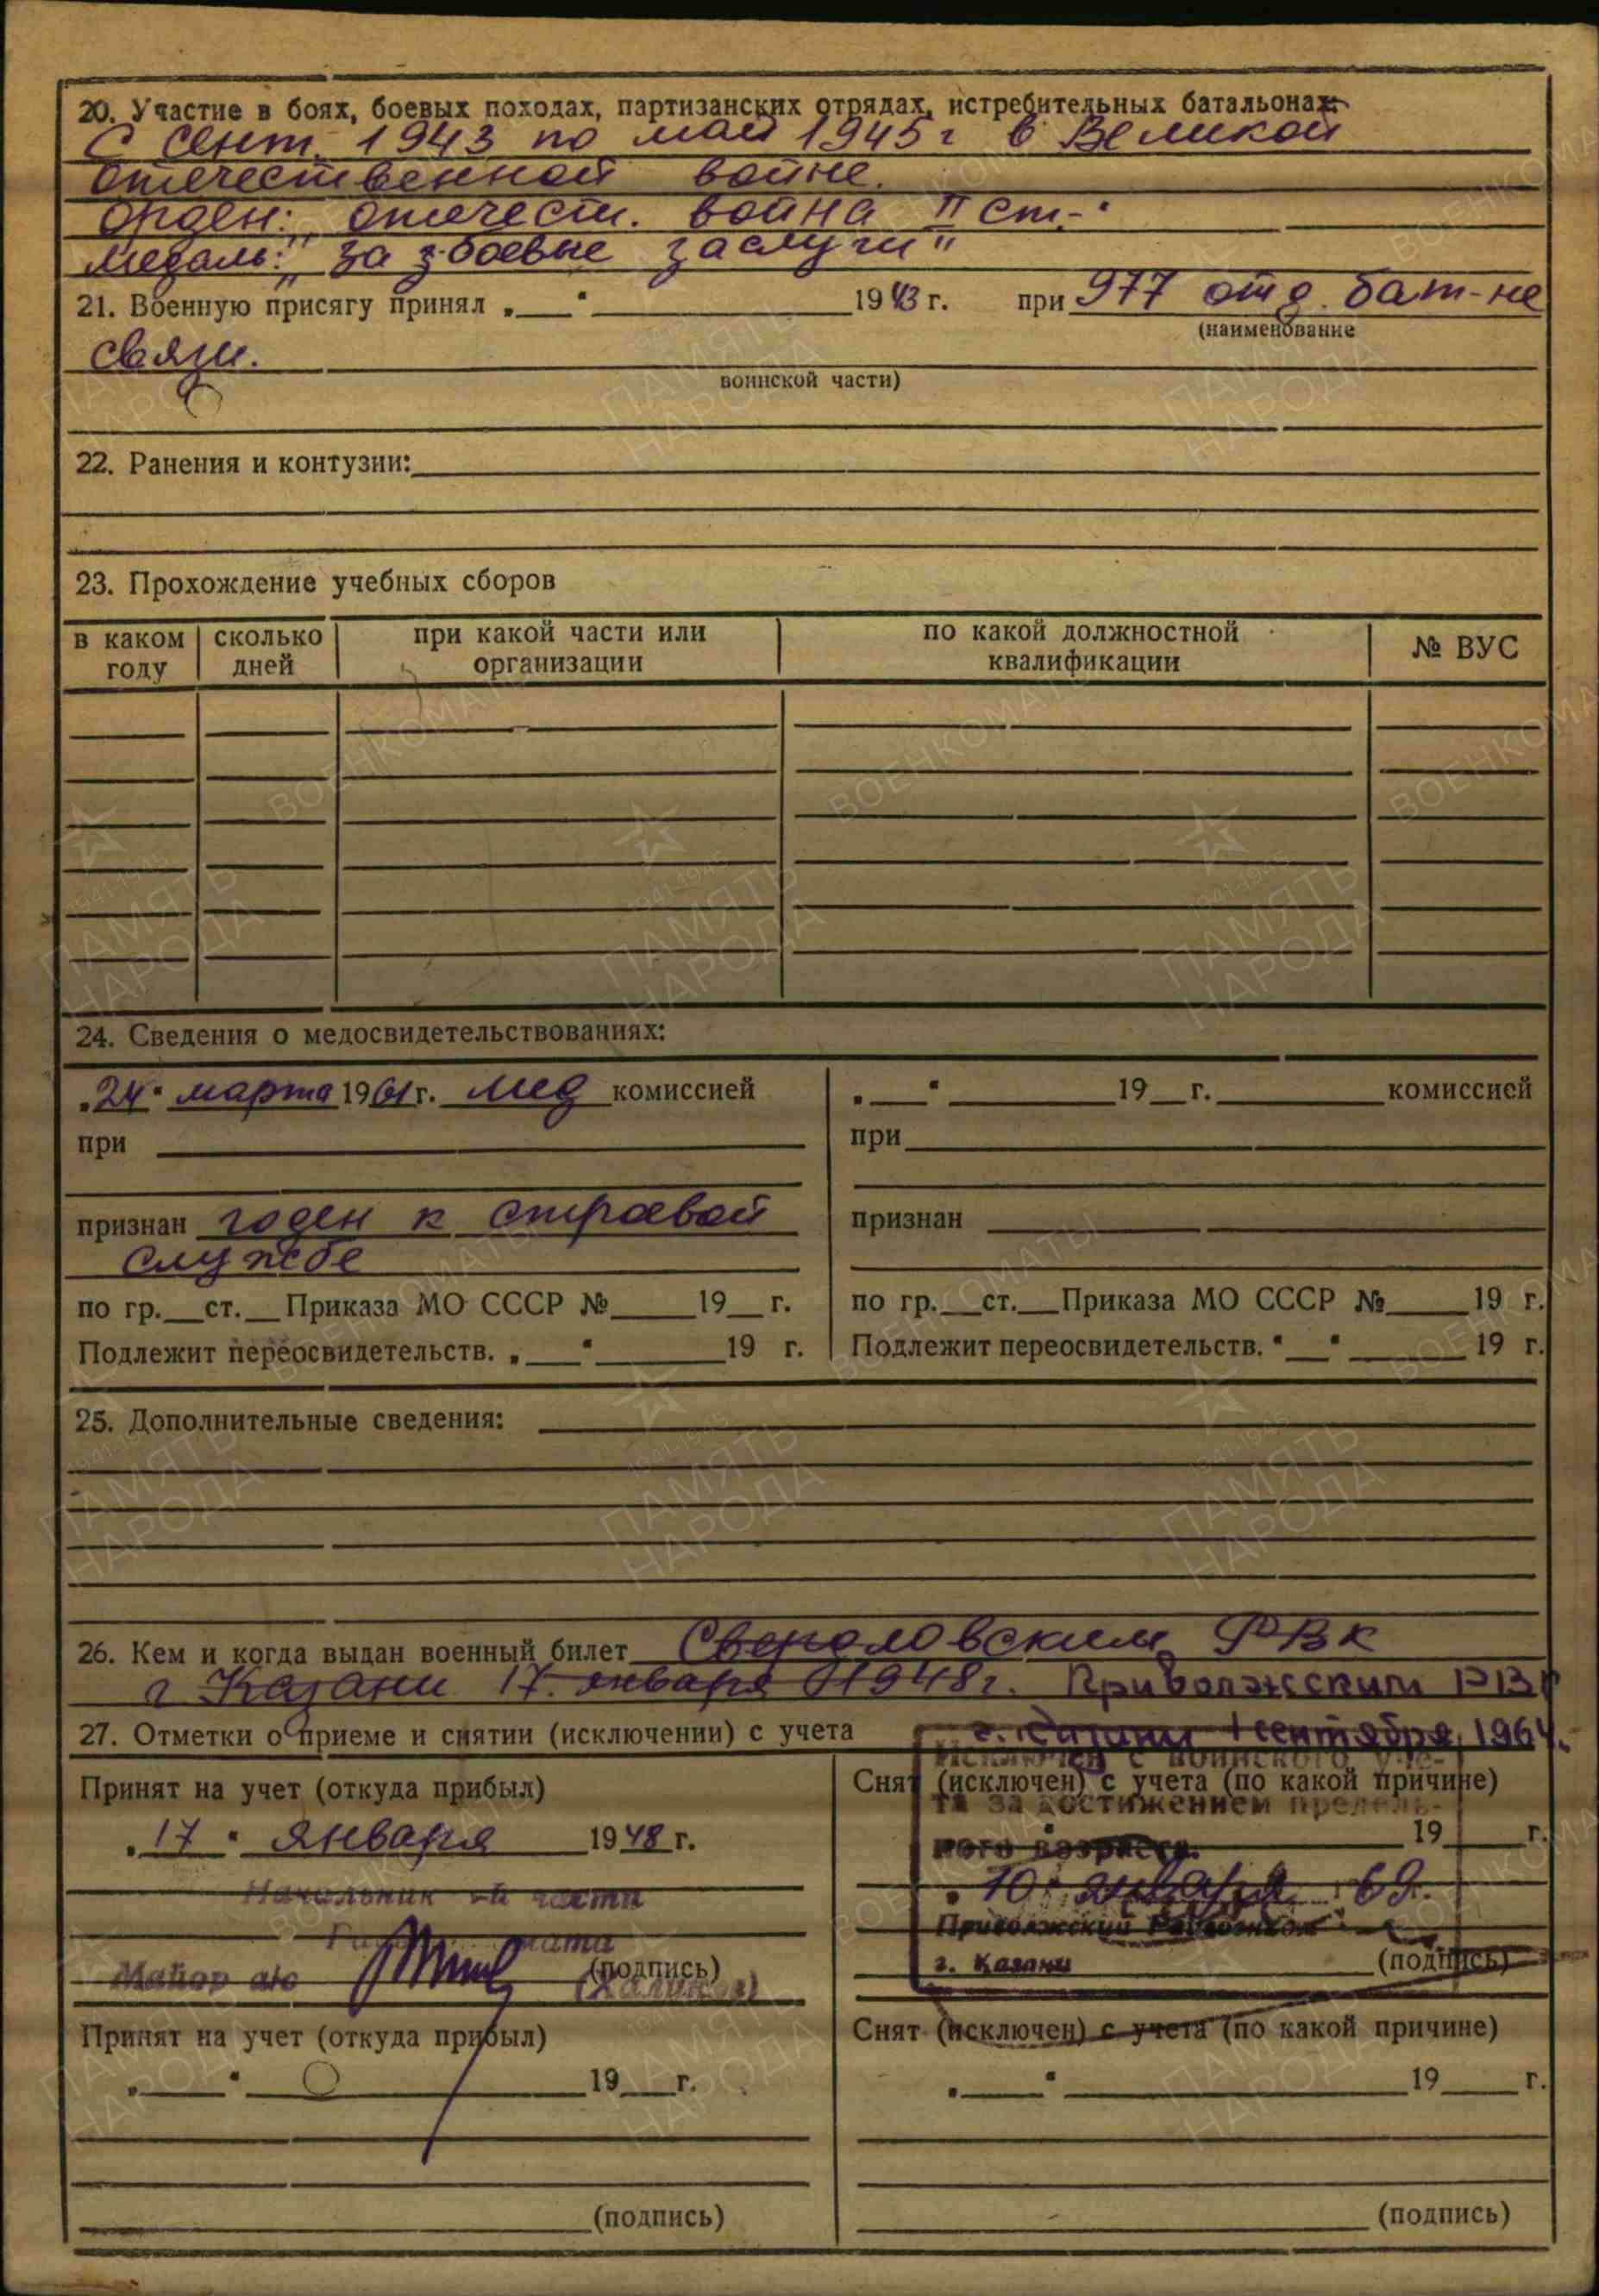 20. Участие в боях, боевых походах, партизанских отрядах, истребительных батальонах:
С сент. 1943 по май 1945 г в Великой
отечественной войне.
орден: „отечест. война II ст.
медаль: „За з боевые заслуги"
21. Военную присягу принял „ " 1943 г. при 977 отд. бат-не
(наименование
связи.
воинской части)
22. Ранения и контузии:
23. Прохождение учебных сборов
в каком году
сколько дней
при какой части или организации
по какой должностной квалификации
№ ВУС
24. Сведения о медосвидетельствованиях:
„24" марта 1961 г. мед комиссией
при
признан годен к строевой
службе
по гр. ст. Приказа МО СССР № 19 г.
Подлежит переосвидетельств. „ " 19 г.
„ " 19 г. комиссией
при
признан
по гр. ст. Приказа МО СССР № 19 г.
Подлежит переосвидетельств. " " 19 г.
25. Дополнительные сведения:
26. Кем и когда выдан военный билет Свердловским РВК
г Казани 17 января 1948 г. Приволжским РВК
г. Казани 1 сентября 1964.
27. Отметки о приеме и снятии (исключении) с учета
Принят на учет (откуда прибыл)
„17" января 1948 г.
Начальник части
Майор а/с (подпись)
Принят на учет (откуда прибыл)
„ " 19 г.
(подпись)
Исключен с воинского уче-
Снят (исключен) с учета (по какой причине)
та за достижением предель-
ного возраста.
19 г.
„10" января 69.
Приволжский Райвоенком
г. Казани (подпись)
Снят (исключен) с учета (по какой причине)
„ " 19 г.
(подпись)
ВОЕНКОМАТЫ
1941-1945
ПАМЯТЬ
НАРОДА